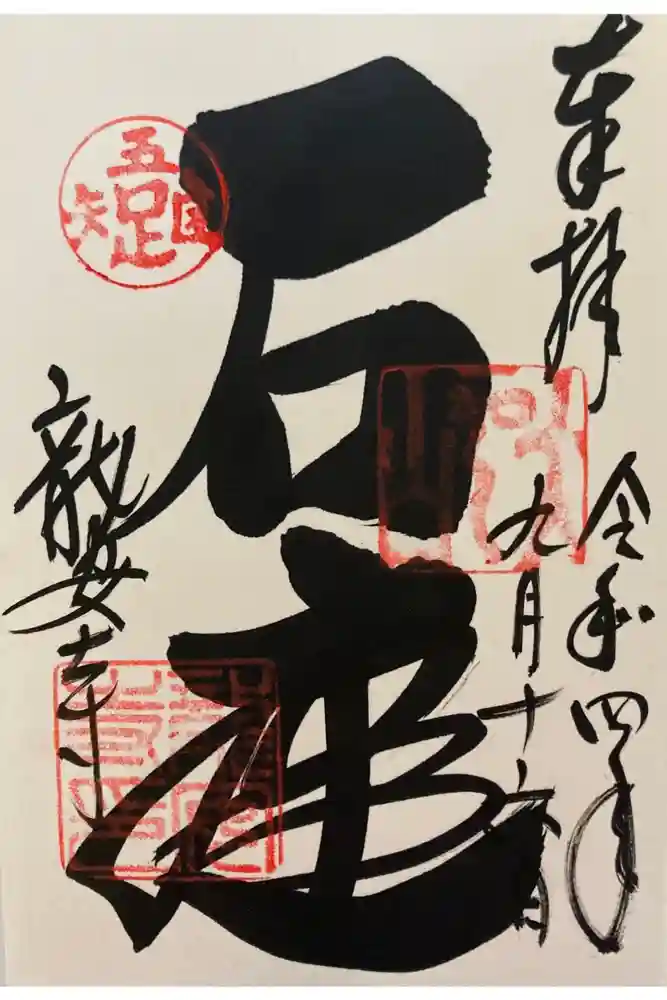 奉拝
令和四年
九月十六日
石庭
龍安寺
吾唯足知